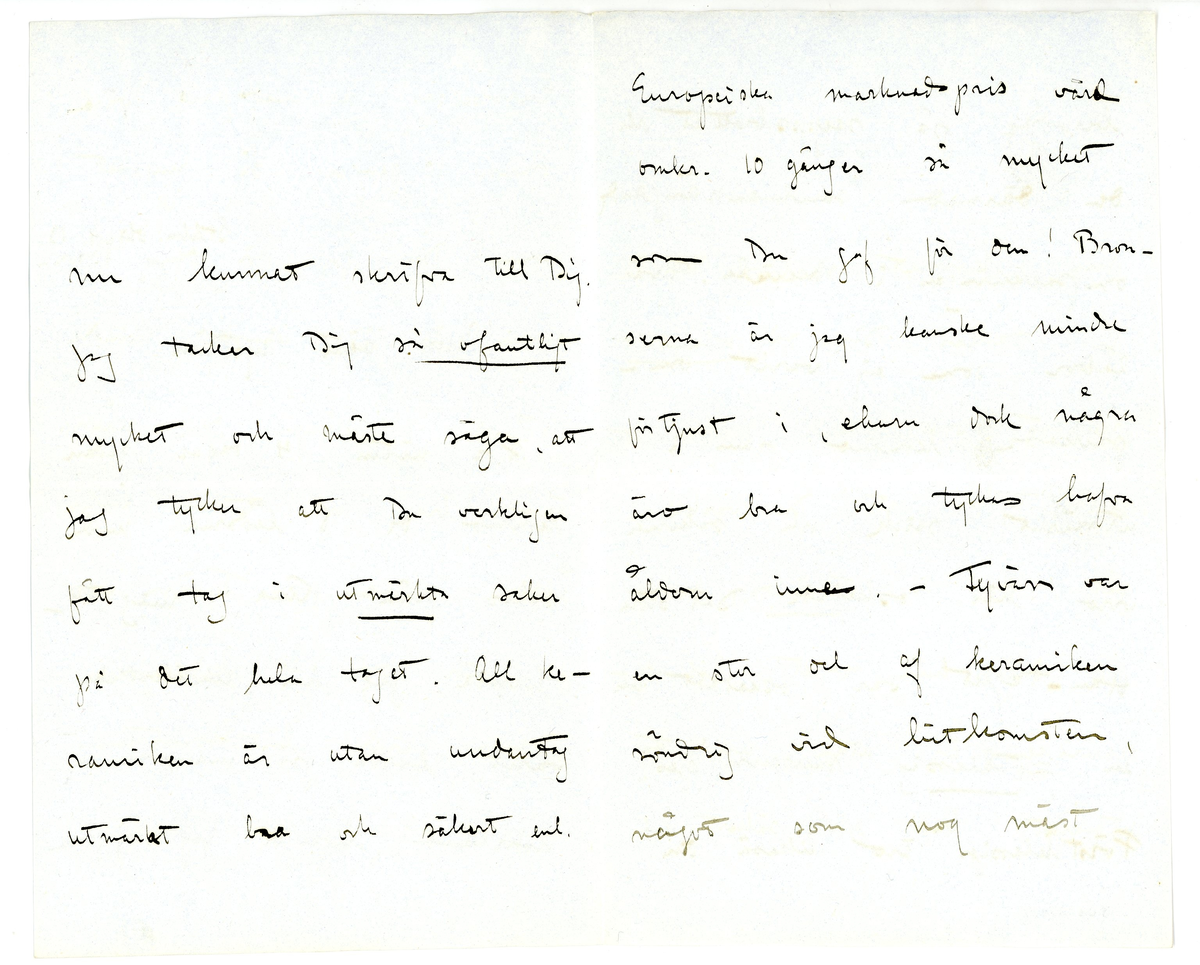 nu kunnat skrifva till Dig.
Jag tackar Dig så ofantligt
mycket och måste säga, att
jag tycker att Du verkligen
fått tag i utmärkta saker
på det hela taget. All ke-
ramiken är utan undantag
utmärkt bra och säkert enl.
Europeiska marknadspris värd
omkr. 10 gånger så mycket
som Du gaf för den! Bron-
serna är jag kanske mindre
förtjust i, ehuru dock några
äro bra och tyckas hafva
åldern inne. - Tyvärr var
en stor del af keramiken
söndrig vid hitkomsten,
något som nog mäst